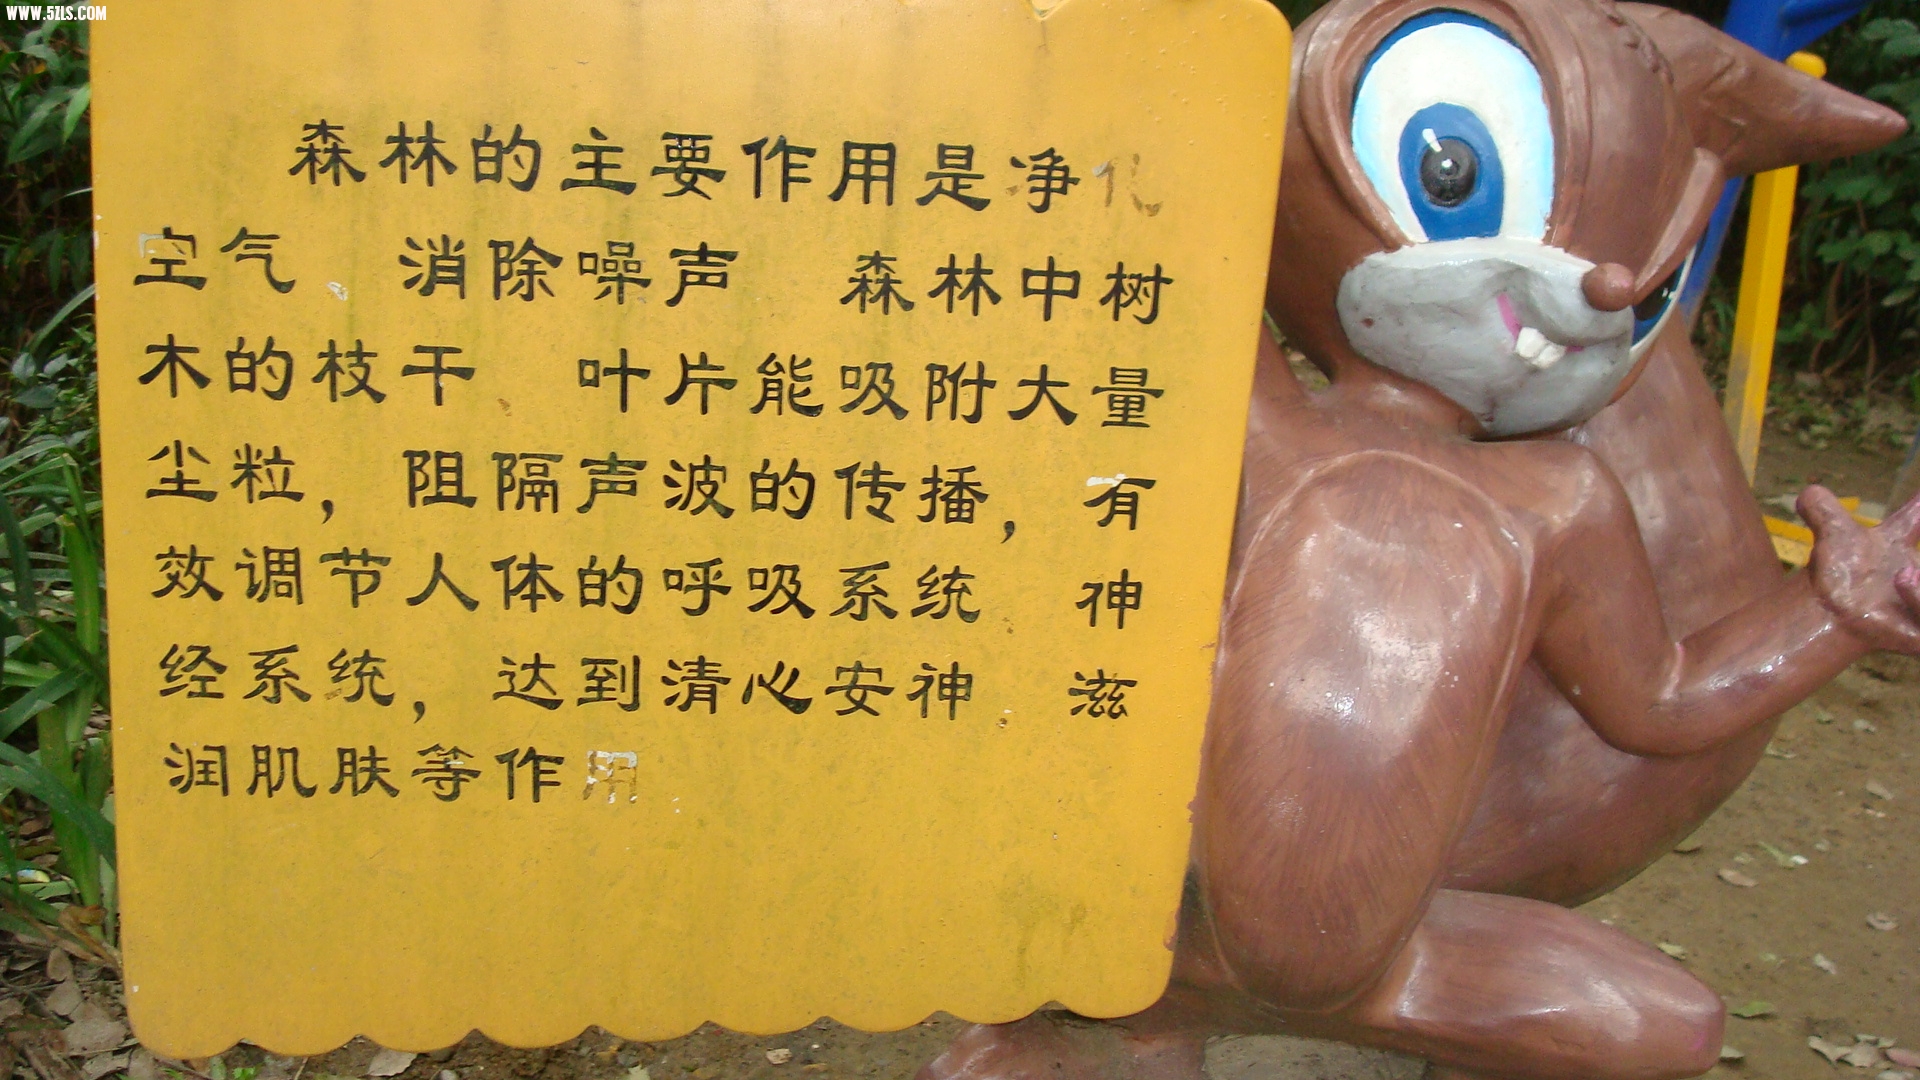 WWW.5ZLS.COM
森林的主要作用是净化
空气、消除噪声 森林中树
木的枝干、叶片能吸附大量
尘粒，阻隔声波的传播，有
效调节人体的呼吸系统、神
经系统，达到清心安神、滋
润肌肤等作用